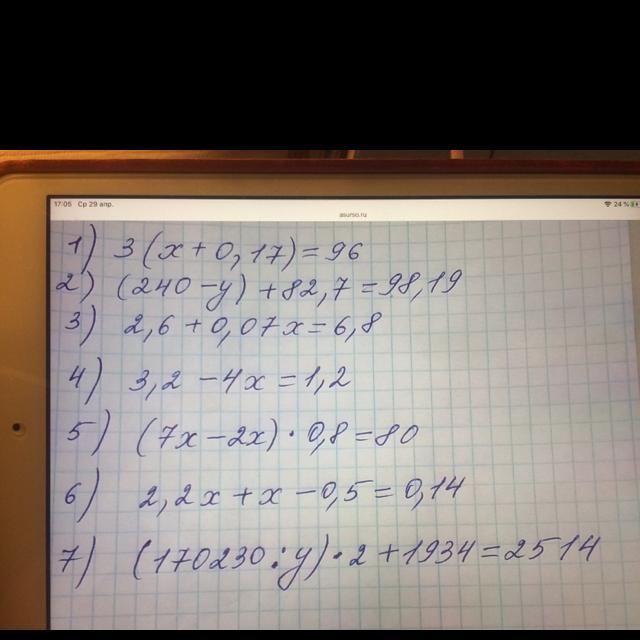 17:05 Ср 29 апр.
24 %
asurso.ru
1) 3(x+0,17)=96
2) (240-y)+82,7=98,19
3) 2,6+0,07x=6,8
4) 3,2-4x=1,2
5) (7x-2x)·0,8=80
6) 2,2x+x-0,5=0,14
7) (170230:y)·2+1934=2514